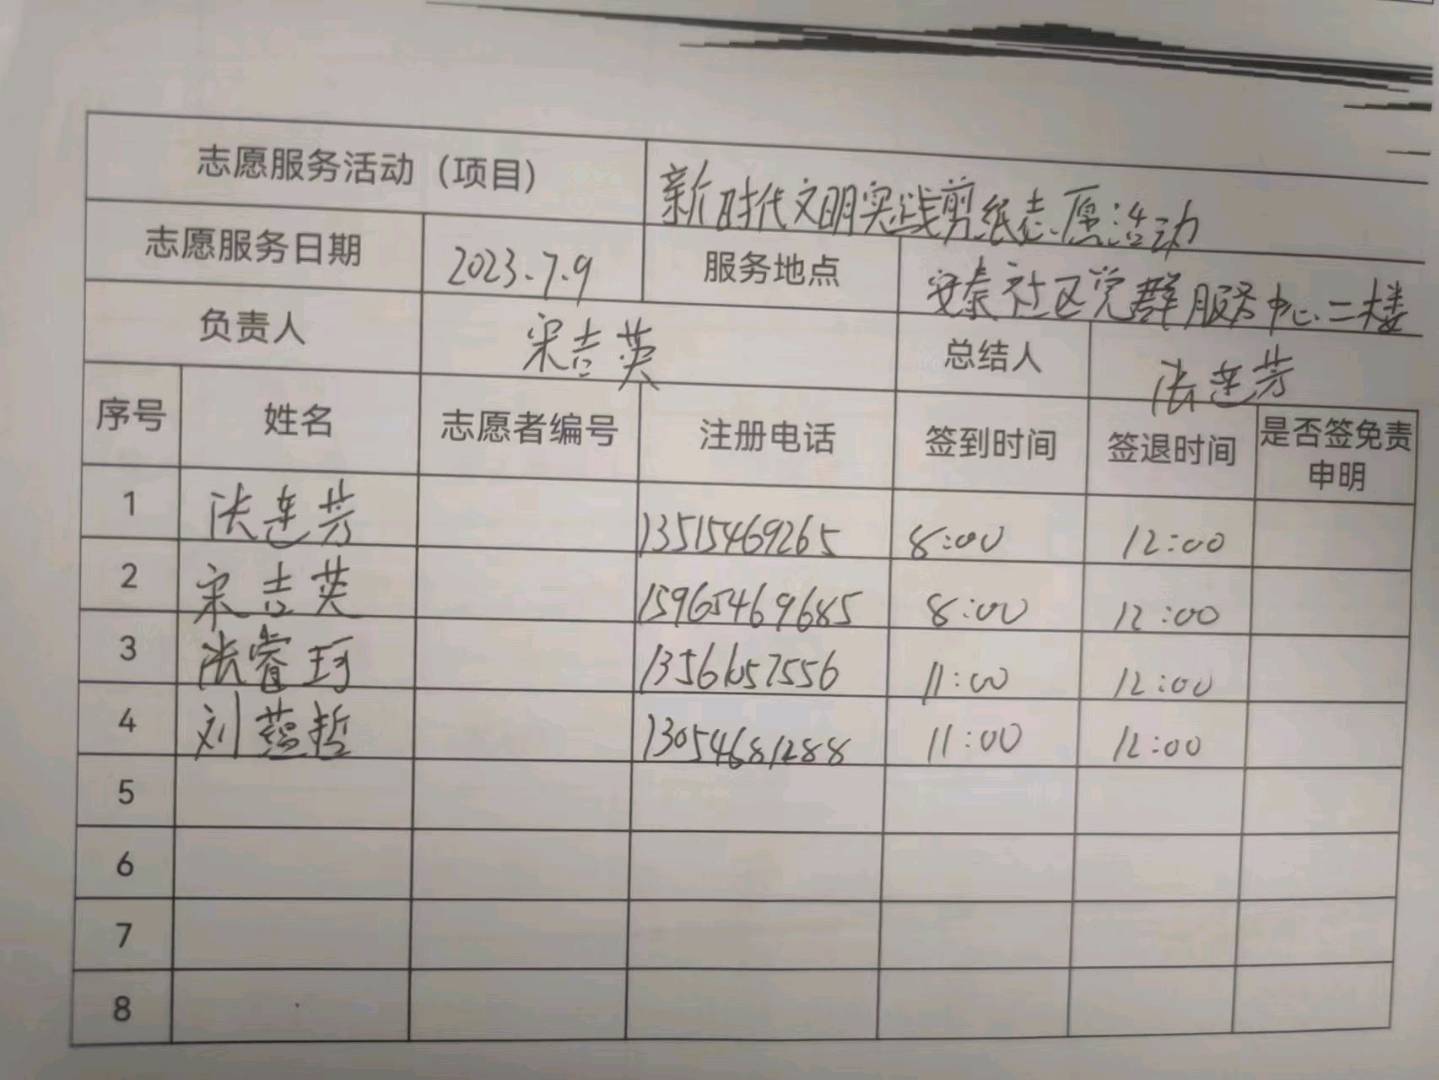 志愿服务活动（项目） 新时代文明实践剪纸志愿活动
志愿服务日期 2023.7.9 服务地点 安泰社区党群服务中心二楼
负责人 宋吉英 总结人 张连芳
序号 姓名 志愿者编号 注册电话 签到时间 签退时间 是否签免责申明
1 张连芳 13515469265 8:00 12:00
2 宋吉英 15965469685 8:00 12:00
3 张睿珂 11:00 12:00
4 刘蕴哲 13054681288 11:00 12:00
5
6
7
8